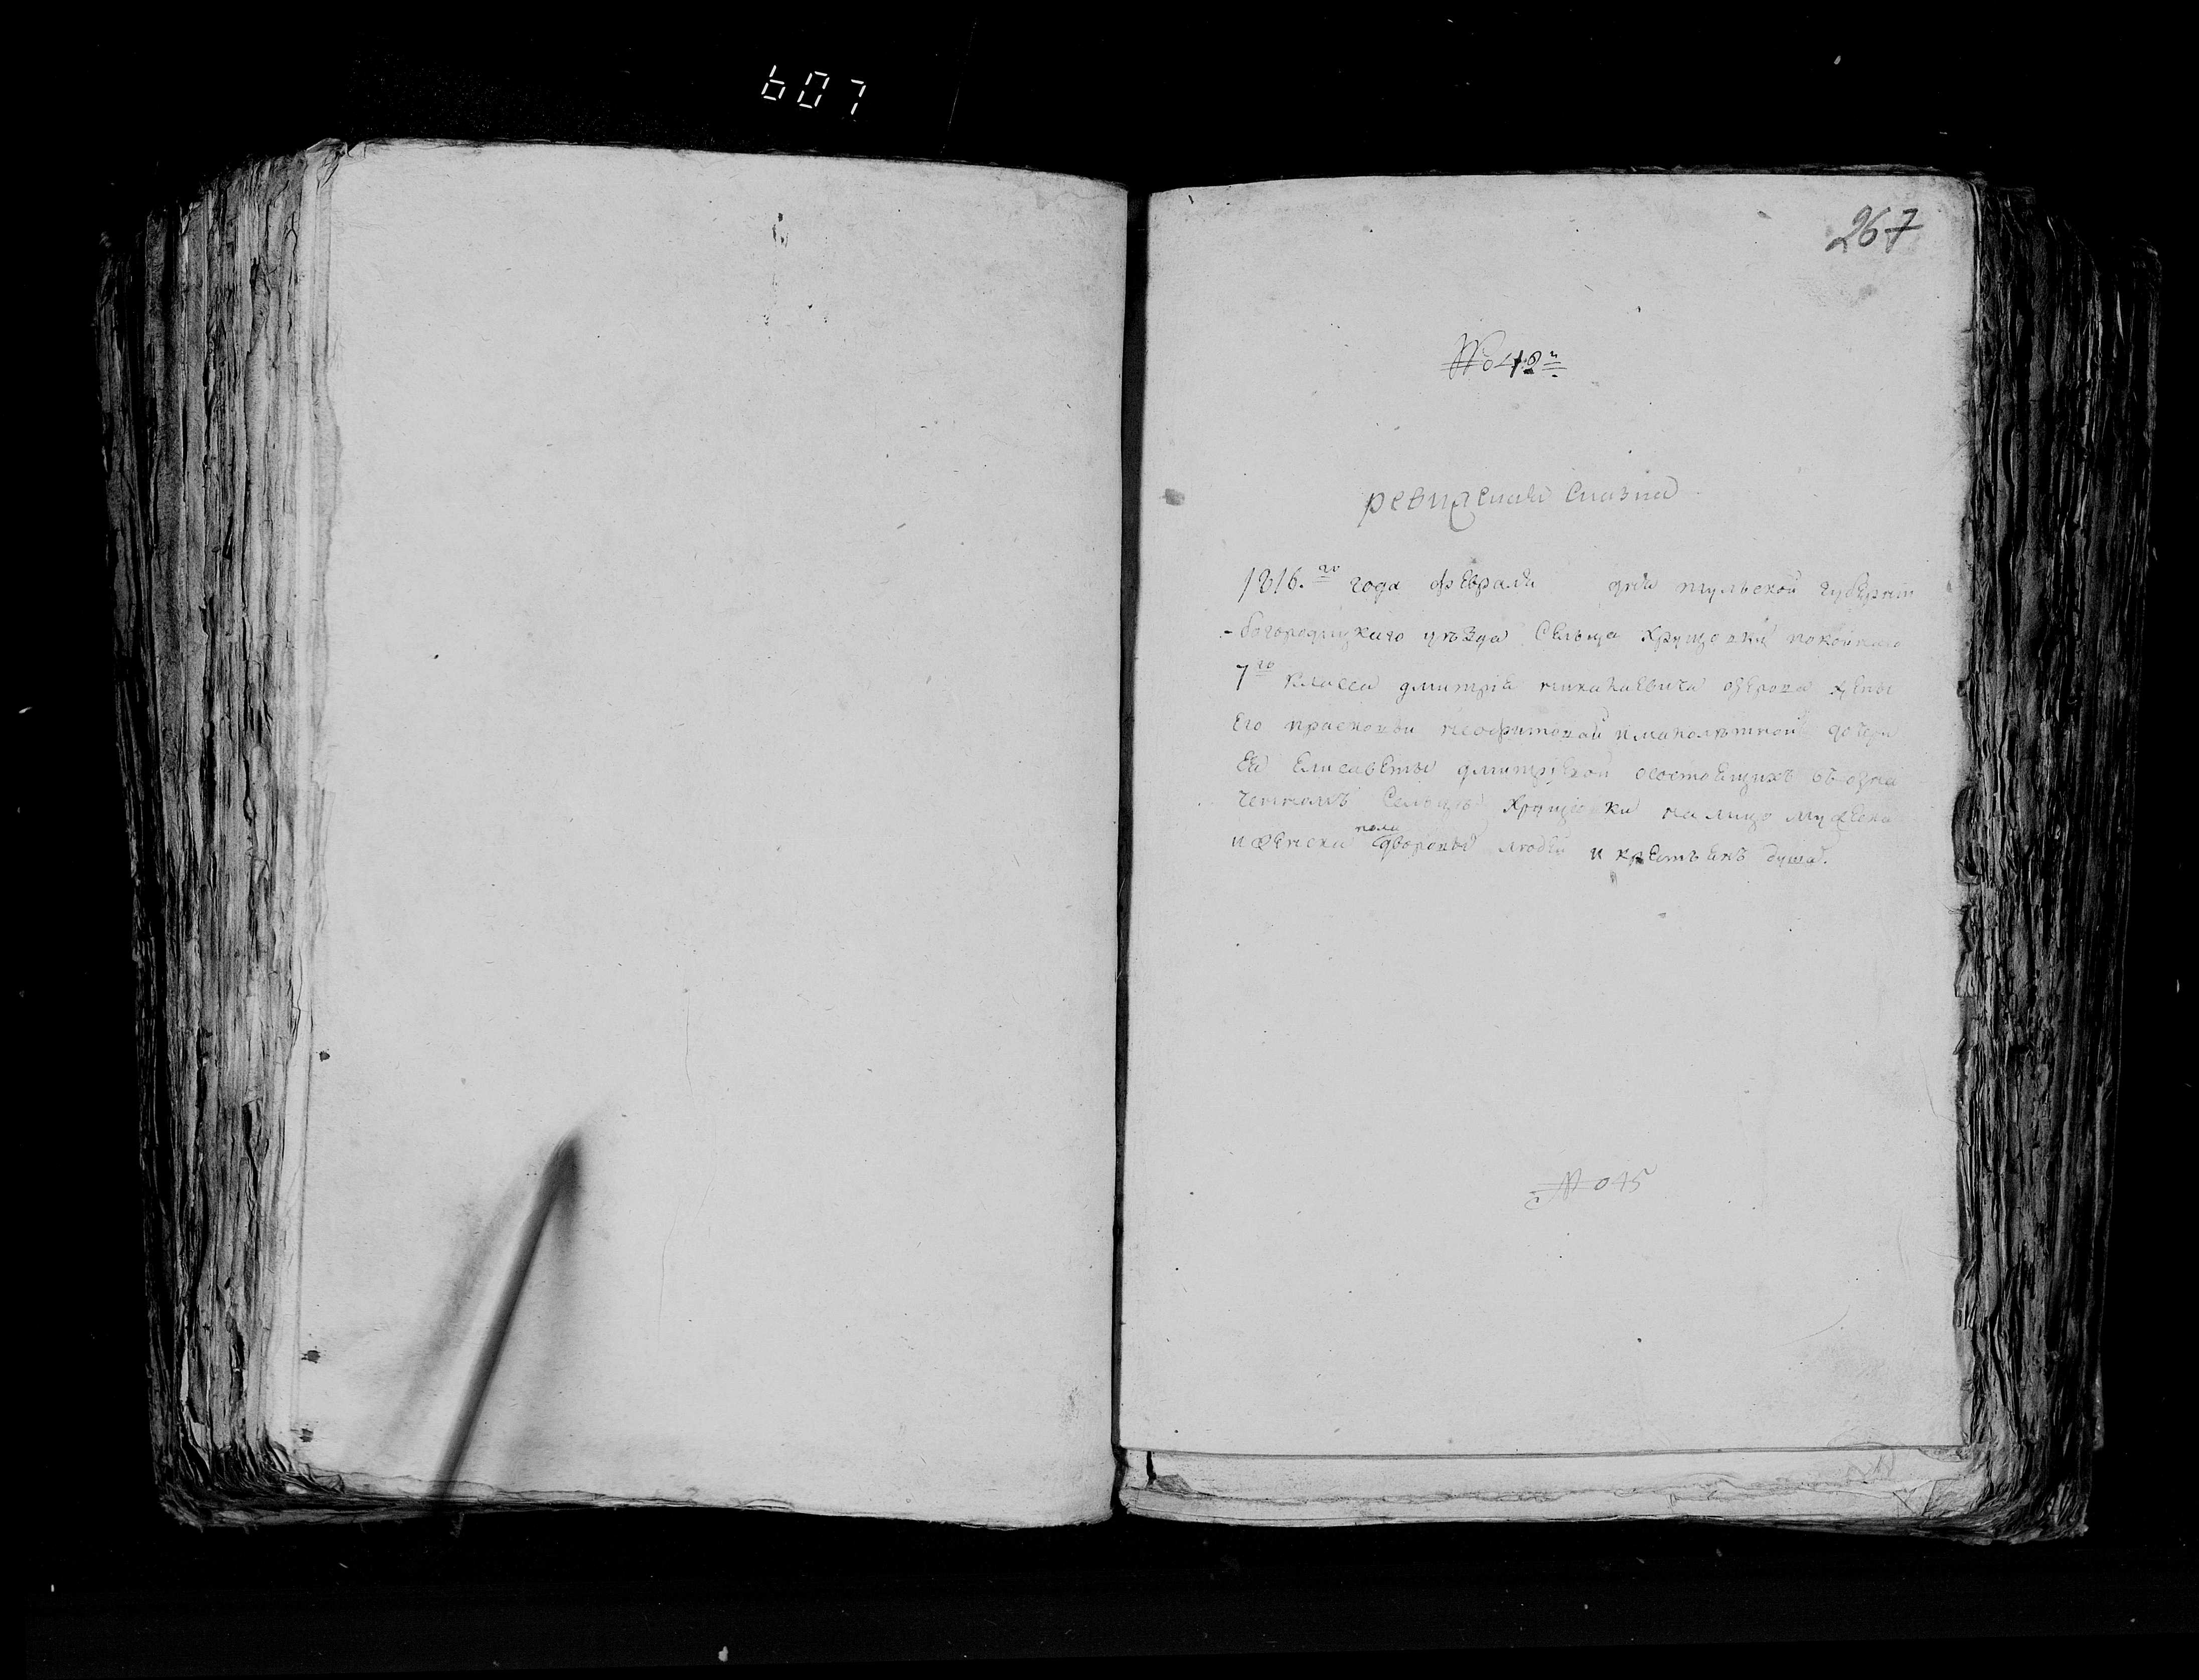 607
267
№ 42й
ревизская сказка
1816.го года февраля дня тульской губернии
-богородицкаго уѣзда Сельца Хрущовки покойнаго
7го класса дмитрия михайлевича озерова жены
Его прасковьи неофитовой и малолѣтной дочери
Ея Елисаветы дмитревой осостоящихъ въ озна
ченномъ Сельцѣ Хрущовки на лицо мужеска
и женска пола дворовыхъ людей и крестьянъ душа.
№ 45